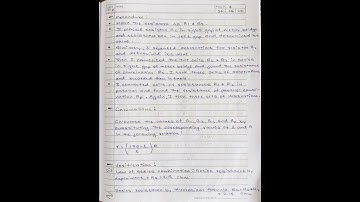 Procedure :
Mark the resistors as R1 & R2.
I placed resistor R1 in right gap of meter bridge
and resistance box in left gap and determined its
value.
Similarly, I repeated observations for resistor R2
and determined its value.
Then I connected the two coils R1 & R2 in series
in right gap of meter bridge and found the resistance
of combination Rs. I took three sets of observations
and recorded them in table.
I connected coils of resistances R1 & R2 in
parallel and found the resistance of parallel combi-
nation Rp. Again, I took three sets of observations.
Calculations :
Calculate the values of R1, R2, Rs and Rp by
substituting the corresponding values of l and R
in the following relation :
X = (100-l / l) R
Verification :
Law of series combination : Series resistance by
experiment, Rs =
Series resistance by theoretical formula Rs = R1+R2